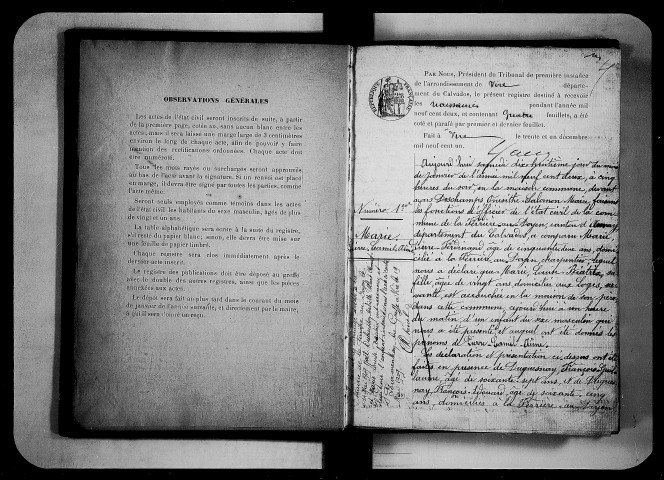 OBSERVATIONS GÉNÉRALES
Les actes de l'état civil seront inscrits de suite, à partir
de la première page, cotée 1re, sans aucun blanc entre les
actes, mais il sera laissé une marge large de 3 centimètres
environ le long de chaque acte, afin de pouvoir y faire
mention des rectifications ordonnées. Chaque acte doit
être numéroté.
Tous les mots rayés ou surchargés seront approuvés
au bas de l'acte avant la signature. Si un renvoi est placé
en marge, il devra être signé par toutes les parties, comme
l'acte même.
Seront seuls employés comme témoins dans les actes
de l'état civil les habitants du sexe masculin, âgés de plus
de vingt et un ans.
La table alphabétique sera écrite à la suite du registre,
s'il reste du papier blanc; sinon, elle devra être mise sur
une feuille de papier timbré.
Chaque registre sera clos immédiatement après le
dernier acte inscrit.
Le registre des publications doit être déposé au greffe
avec le double des autres registres, ainsi que les pièces
annexées aux actes.
Le dépôt sera fait au plus tard dans le courant du mois
de janvier de l'année suivante, et directement par le maire,
à qui il sera donné un reçu.
RÉPUBLIQUE FRANÇAISE
PAR NOUS, Président du Tribunal de première instance
de l'arrondissement de Vire départe-
ment du Calvados, le présent registre destiné à recevoir
les naissances pendant l'année mil
neuf cent deux, et contenant Quatre feuillets, a été
coté et paraphé par premier et dernier feuillet.
Fait à Vire le trente et un décembre
mil neuf cent un.
Numéro: 1er
Marie
Pierre, Daniel, Aimé
Aujourd'hui samedi dix huitième jour du mois
de janvier de l'année mil neuf cent deux, à cinq
heures du soir, en la maison commune, devant
nous Deschamps Onésiphe Salomon Marie, faisant
les fonctions d'officier de l'état civil de la com-
mune de la Ferrière au Doyen, canton d'Aunay,
département du Calvados, a comparu Marie,
Pierre Ferdinand âgé de cinquante deux ans, domi-
cilié à la Ferrière au Doyen, charpentier, lequel
nous a déclaré que Marie, Béatrix, sa
fille, âgée de vingt ans, domiciliée aux Loges, ser-
vante, est accouchée en la maison de son père
dans cette commune, aujourd'hui à une heure
du matin, d'un enfant du sexe masculin qui
nous a été présenté et auquel ont été donnés les
prénoms de Pierre Daniel Aimé.
Les déclaration et présentation ci-dessus ont été
faites en présence de Duquesnay, François Guil-
laume, âgé de soixante sept ans, et de Duques-
nay, François Édouard, âgé de soixante cinq
ans, domiciliés à la Ferrière au Doyen